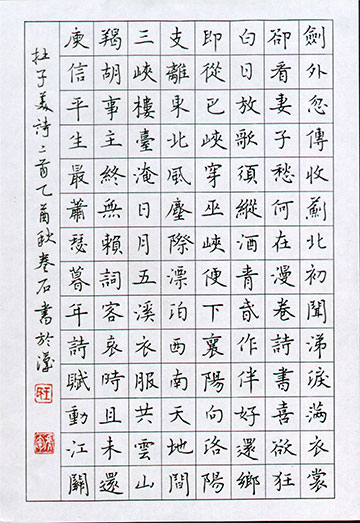 劍外忽傳收薊北初聞涕淚滿衣裳
卻看妻子愁何在漫卷詩書喜欲狂
白日放歌須縱酒青春作伴好還鄉
即從巴峽穿巫峽便下襄陽向洛陽
支離東北風塵際漂泊西南天地間
三峽樓臺淹日月五溪衣服共雲山
羯胡事主終無賴詞客哀時且未還
庾信平生最蕭瑟暮年詩賦動江關
杜子美詩二首乙酉秋卷石書於